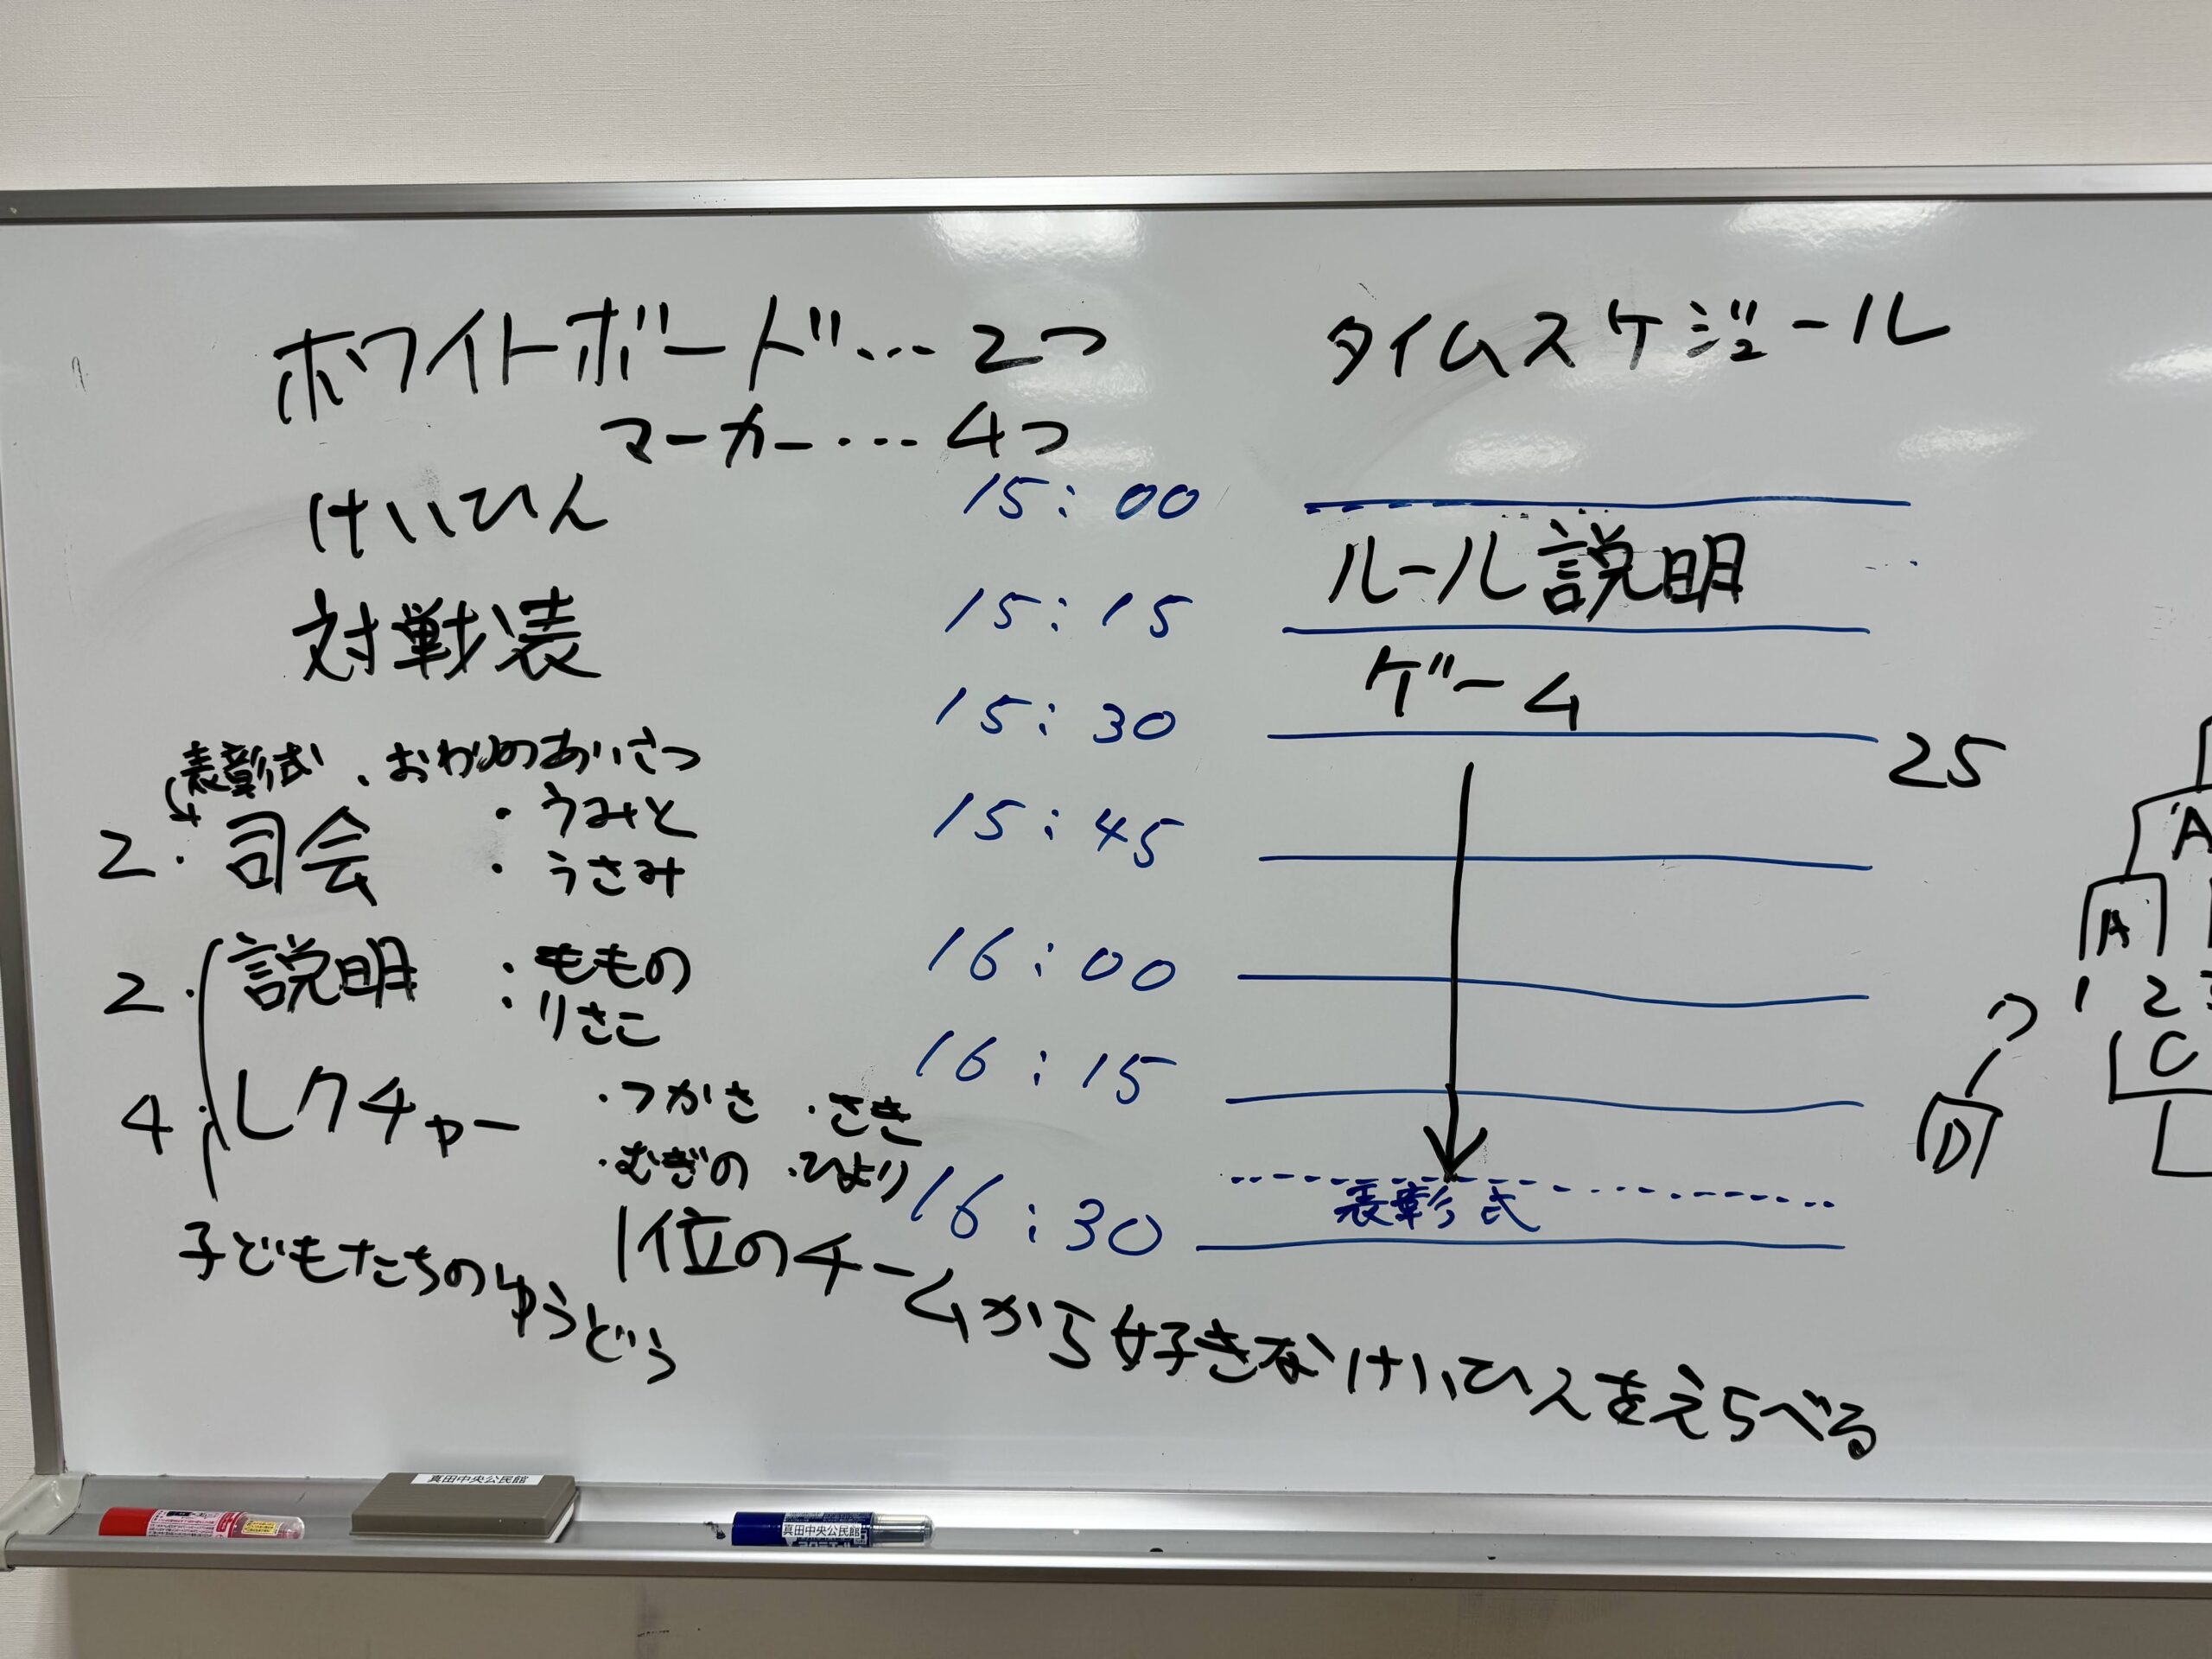 ホワイトボード… 2つ
マーカー… 4つ
けいひん
対戦表
表彰式、おわりのあいさつ
2・司会
・うみと
・うさみ
2・説明
・ももの
・りさこ
4・レクチャー
・つかさ ・さき
・むぎの ・ひより
子どもたちのゆうどう
タイムスケジュール
15:00
ルール説明
15:15
ゲーム
15:30
25
15:45
16:00
16:15
表彰式
16:30
1位のチームから好きなけいひんをえらべる
A
A
1 2
C
D
真田中央公民館
真田中央公民館